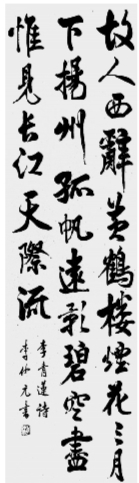 故人西辭黄鶴楼煙花三月
下揚州孤帆遠影碧空盡
惟見长江天際流
李青蓮詩
李仙元書